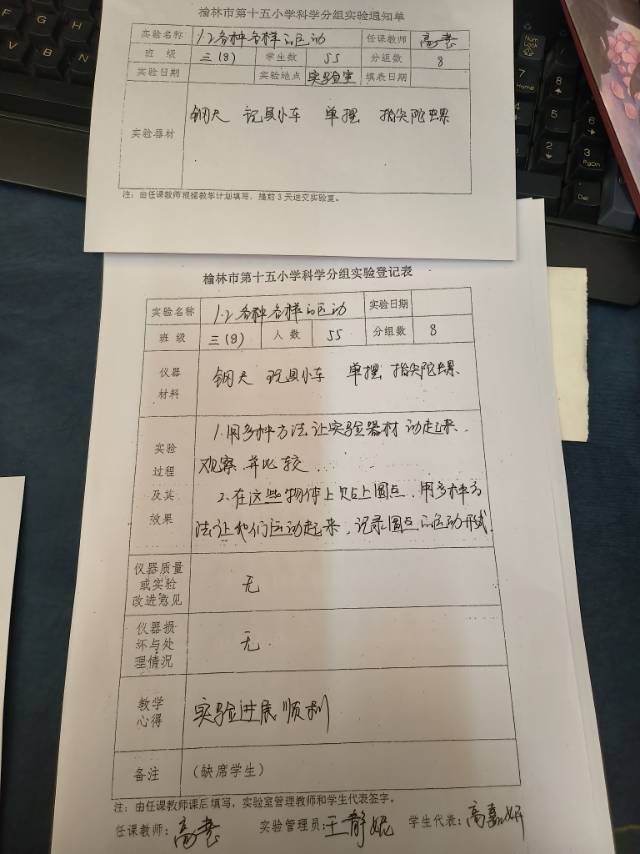 榆林市第十五小学科学分组实验通知单
实验名称 1.2各种各样的运动 任课教师
班 级 三(8) 学生数 55 分组数 8
实验日期 实验地点 实验室 填表日期
实验器材 钢尺 玩具小车 单摆 指尖陀螺
注：由任课教师根据教学计划填写，提前3天送交实验室。
榆林市第十五小学科学分组实验登记表
实验名称 1.2各种各样的运动 实验日期
班 级 三(8) 人 数 55 分组数 8
仪器
材料
钢尺 玩具小车 单摆 指尖陀螺
实验
过程
及其
效果
1.用多种方法让实验器材动起来，
观察并比较.
2.在这些物体上贴上圆点，用多种方
法让他们运动起来，记录圆点的运动形式.
仪器质量
或实验
改进意见
无
仪器损
坏与处
理情况
无
教学
心得
实验进展顺利
备注 （缺席学生）
注：由任课教师课后填写，实验室管理教师和学生代表签字。
任课教师： 实验管理员：王静妮 学生代表：